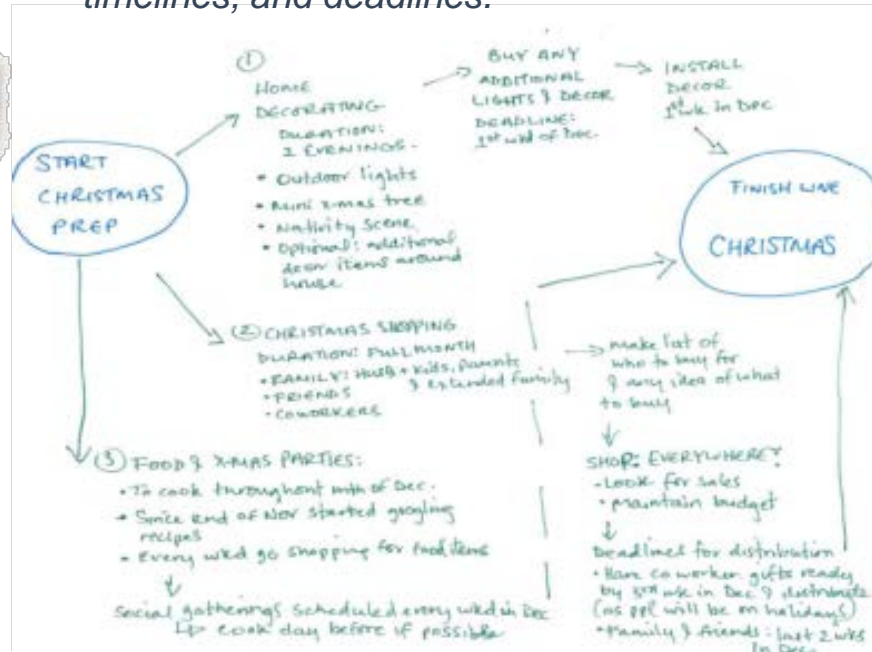 timelines, and deadlines.
START
CHRISTMAS
PREP
①
HOME
DECORATING
DURATION:
2 EVENINGS.
• Outdoor lights
• Mini x-mas tree
• Nativity Scene
• Optional: additional
decor items around
house
BUY ANY
ADDITIONAL
LIGHTS & DECOR
DEADLINE:
1st wkd of Dec.
INSTALL
DECOR
1st wk in Dec
FINISH LINE
CHRISTMAS
② CHRISTMAS SHOPPING
DURATION: FULL MONTH
• FAMILY: HUSB + Kids, Parents
& extended family
• FRIENDS
• COWORKERS
make list of
who to buy for
& any idea of what
to buy
SHOP: EVERYWHERE!
• Look for sales
• maintain budget
Deadlines for distribution
• Have co worker gifts ready
by 3rd wk in Dec & distribute
(as ppl will be on holidays)
• Family & friends: last 2 wks
In Dec.
③ FOOD & X-MAS PARTIES:
• To cook throughout mth of Dec.
• Since end of Nov started googling
recipes
• Every wkd go shopping for food items
Social gatherings scheduled every wkd in Dec
cook day before if possible